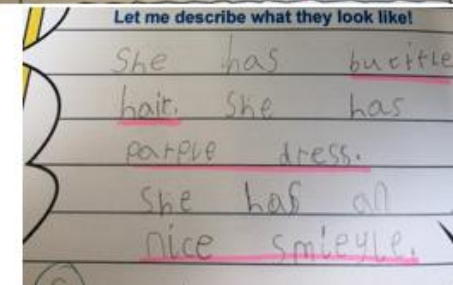 Let me describe what they look like!
She has bucitle
hair. She has
parple dress.
She has an
nice smieyle.